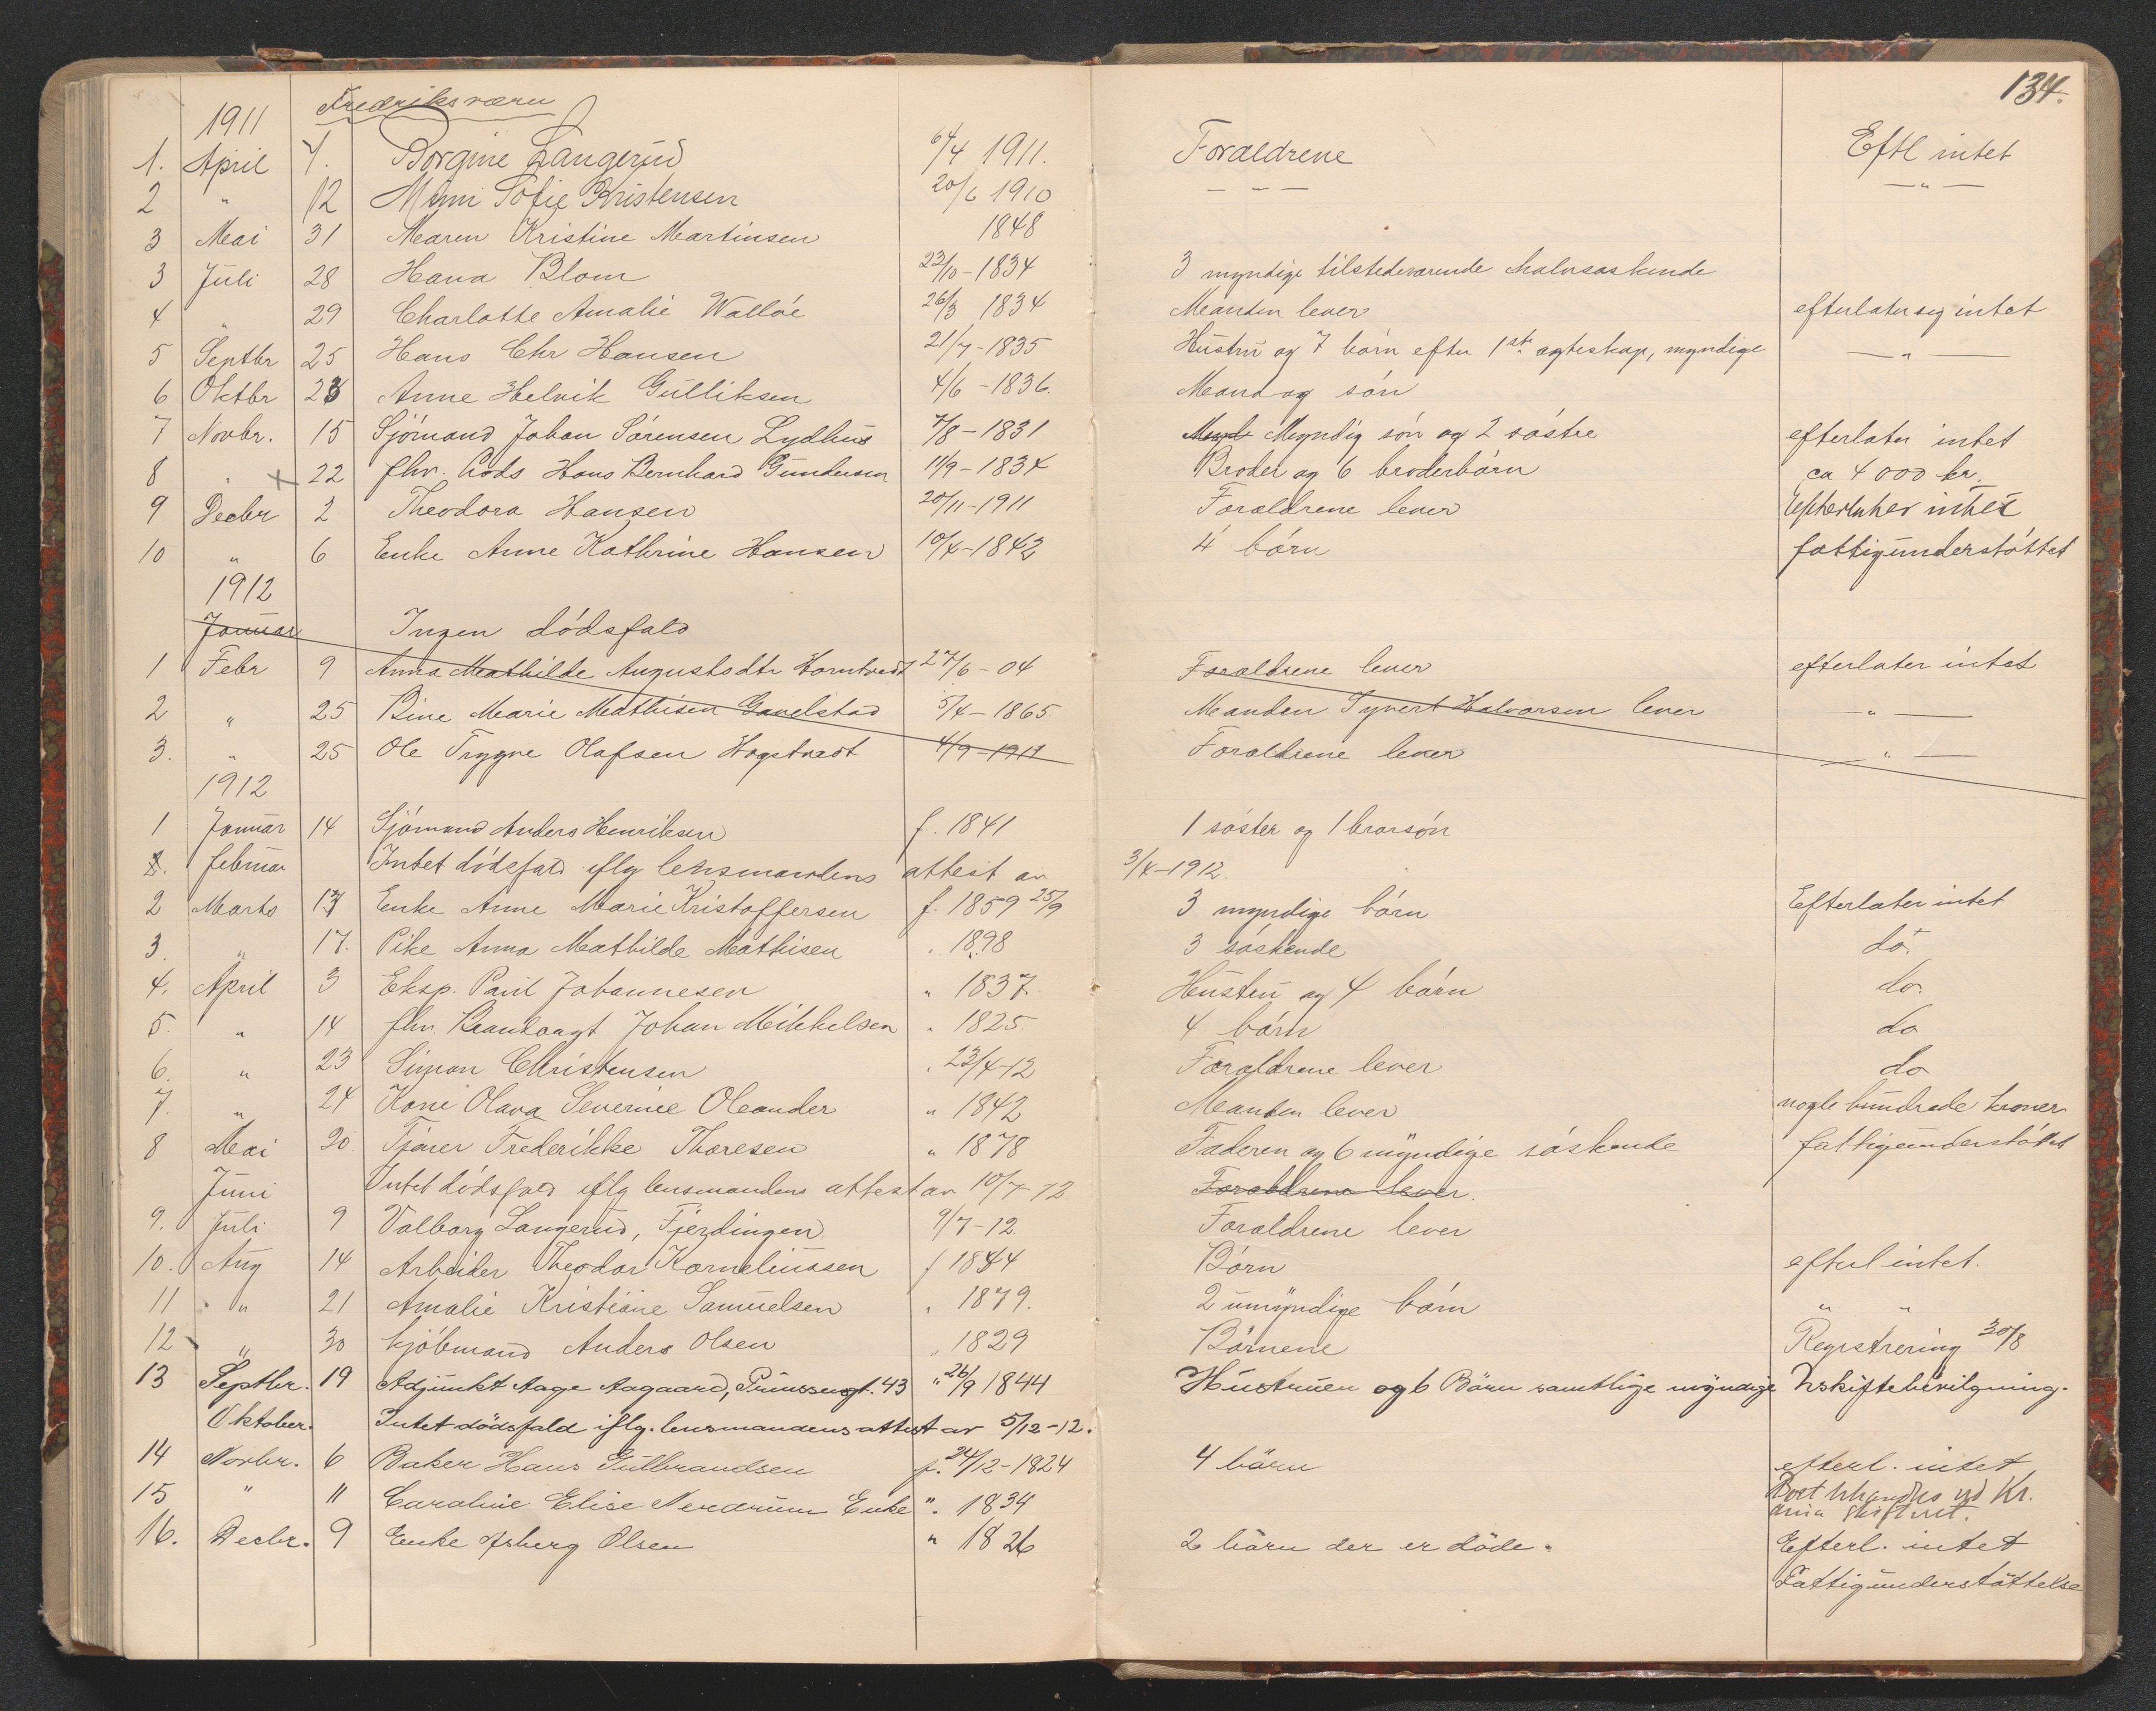 134.
Fredriksværn
1911
1. April 7. Borgine Langerud 6/4 1911. Forældrene Eftl intet
2 " 12 Mimi Sofie Kristensen 20/6 1910 — — — — " —
3 Mai 31 Maren Kristine Martinsen 1848
3 Juli 28 Hana Blom 22/10-1834 3 myndige tilstedeværende halvsøskende
4 " 29 Charlotte Amalie Walløe 26/3 1834 Manden lever efterlater sig intet
5 Septbr 25 Hans Chr Hansen 21/7-1835 Hustru og 7 børn efter 1ste ægteskap, myndige — " —
6 Oktbr 23 Anne Helvik Gulliksen 4/6-1836. Mand og søn
7 Novbr. 15 Sjømand Johan Sørensen Lydhus 7/8-1831 Myndig søn og 2 søstre efterlater intet
8 " x 22 fhv. Lods Hans Bernhard Gundersen 11/9-1834 Broder og 6 broderbørn ca 4000 kr.
9 Decbr 2 Theodora Hansen 20/11-1911 Forældrene lever Efterlater intet
10 " 6 Enke Anne Kathrine Hansen 10/4-1842 4 børn fattigunderstøttet
1912
Januar Ingen dødsfald
1 Febr 9 Anna Mathilde Augustsdtr Horntvedt 27/6-04 Forældrene lever efterlater intet
2 " 25 Bine Marie Mathisen Gavelstad 5/4-1865. Manden Syvert Halvorsen lever — " —
3. " 25 Ole Trygve Olafsen Hogstvedt 4/9-1911 Forældrene lever — " —
1912
1 Januar 14 Sjømand Anders Henriksen f. 1841 1 søster og 1 brorsøn
2. februar Intet dødsfald iflg lensmandens attest av 3/4-1912.
2 Marts 17 Enke Anne Marie Kristoffersen f. 1859 25/9 3 myndige børn Efterlater intet
3. " 17. Pike Anna Mathilde Mathisen " 1898 3 søskende do.
4. April 3 Eksp. Paul Johannesen " 1837. Hustru og 4 børn do.
5. " 14 fhv. Kranvogt Johan Mikkelsen " 1825. 4 børn do
6. " 23 Simon Christensen " 23/4-12 Forældrene lever do
7. " 24 Kone Olava Severine Oleander " 1842 Manden lever nogle hundrede kroner
8 Mai 20 Tjener Frederikke Thoresen " 1878 Faderen og 6 myndige søskende fattigunderstøttet
Juni Intet dødsfald iflg lensmandens attest av 10/7-12 Forældrene lever.
9. Juli 9 Valborg Langerud, Fjerdingen 9/7-12 Forældrene lever
10. Aug 14 Arbeider Theodor Korneliussen f 1844 Børn efterl intet.
11 " 21 Amalie Kristiane Samuelsen " 1879. 2 umyndige børn " "
12 " 30 kjøbmand Anders Olsen " 1829 Børnene Registrering 30/8
13 Septbr. 19 Adjunkt Aage Aagaard, Prinsensgt. 43 " 26/9 1844 Hustruen og 6 Børn samtlige myndige Uskiftebevilgning.
Oktober. Intet dødsfald iflg. lensmandens attest av 5/12-12.
14 Novbr. 6 Baker Hans Gulbrandsen f. 24/12-1824 4 børn efterl. intet
15 " 11 Caroline Elise Nerdrum Enke " 1834 Boet behandles ved Kr.
ania skifteret.
16. Decbr. 9 Enke Asberg Olsen " 1826 2 børn der er døde. Efterl. intet
Fattigunderstøttelse